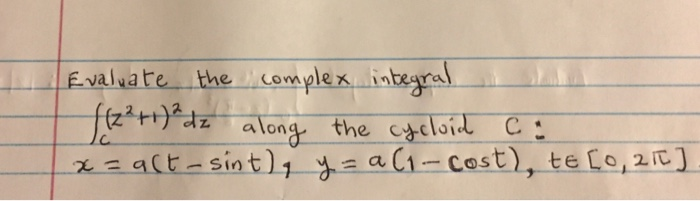 Evaluate the complex integral
∫_C (z²+1)² dz along the cycloid C :
x = a(t - sint), y = a(1 - cost), t ∈ [0, 2π]